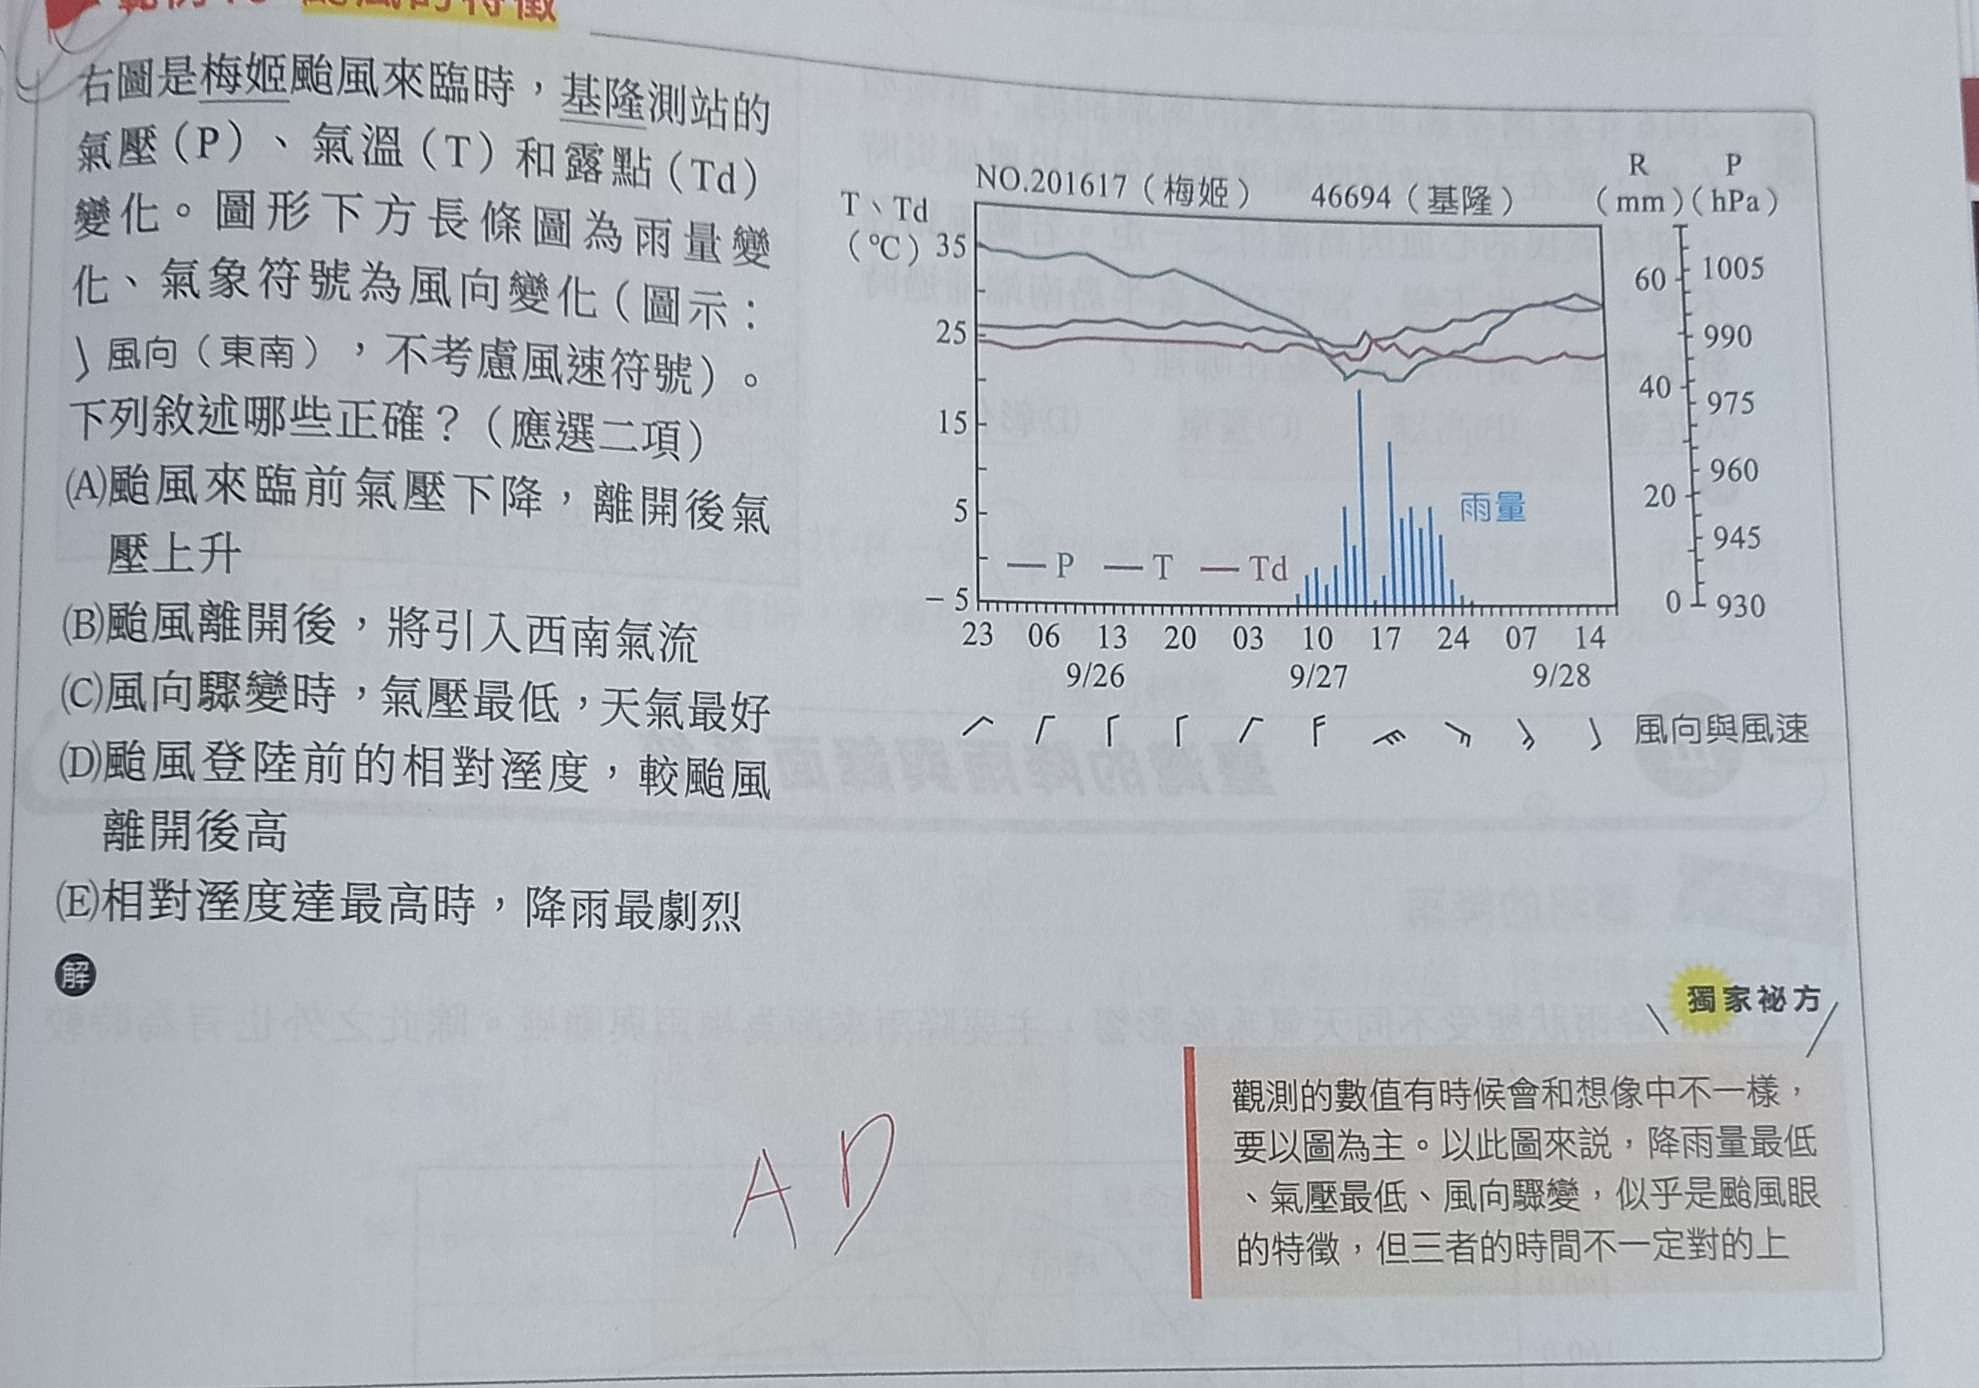 範例10 颱風的特徵
右圖是梅姬颱風來臨時，基隆測站的
氣壓（P）、氣溫（T）和露點（Td）
變化。圖形下方長條圖為雨量變
化、氣象符號為風向變化（圖示：
風向（東南），不考慮風速符號）。
下列敘述哪些正確？（應選二項）
(A)颱風來臨前氣壓下降，離開後氣
壓上升
(B)颱風離開後，將引入西南氣流
(C)風向驟變時，氣壓最低，天氣最好
(D)颱風登陸前的相對溼度，較颱風
離開後高
(E)相對溼度達最高時，降雨最劇烈
解
AD
NO.201617（梅姬） 46694（基隆）
T、Td
（℃）
R
（mm）
P
（hPa）
35
25
15
5
－5
60
40
20
0
1005
990
975
960
945
930
雨量
P T Td
23 06 13 20 03 10 17 24 07 14
9/26 9/27 9/28
風向與風速
獨家祕方
觀測的數值有時候會和想像中不一樣，
要以圖為主。以此圖來說，降雨量最低
、氣壓最低、風向驟變，似乎是颱風眼
的特徵，但三者的時間不一定對的上